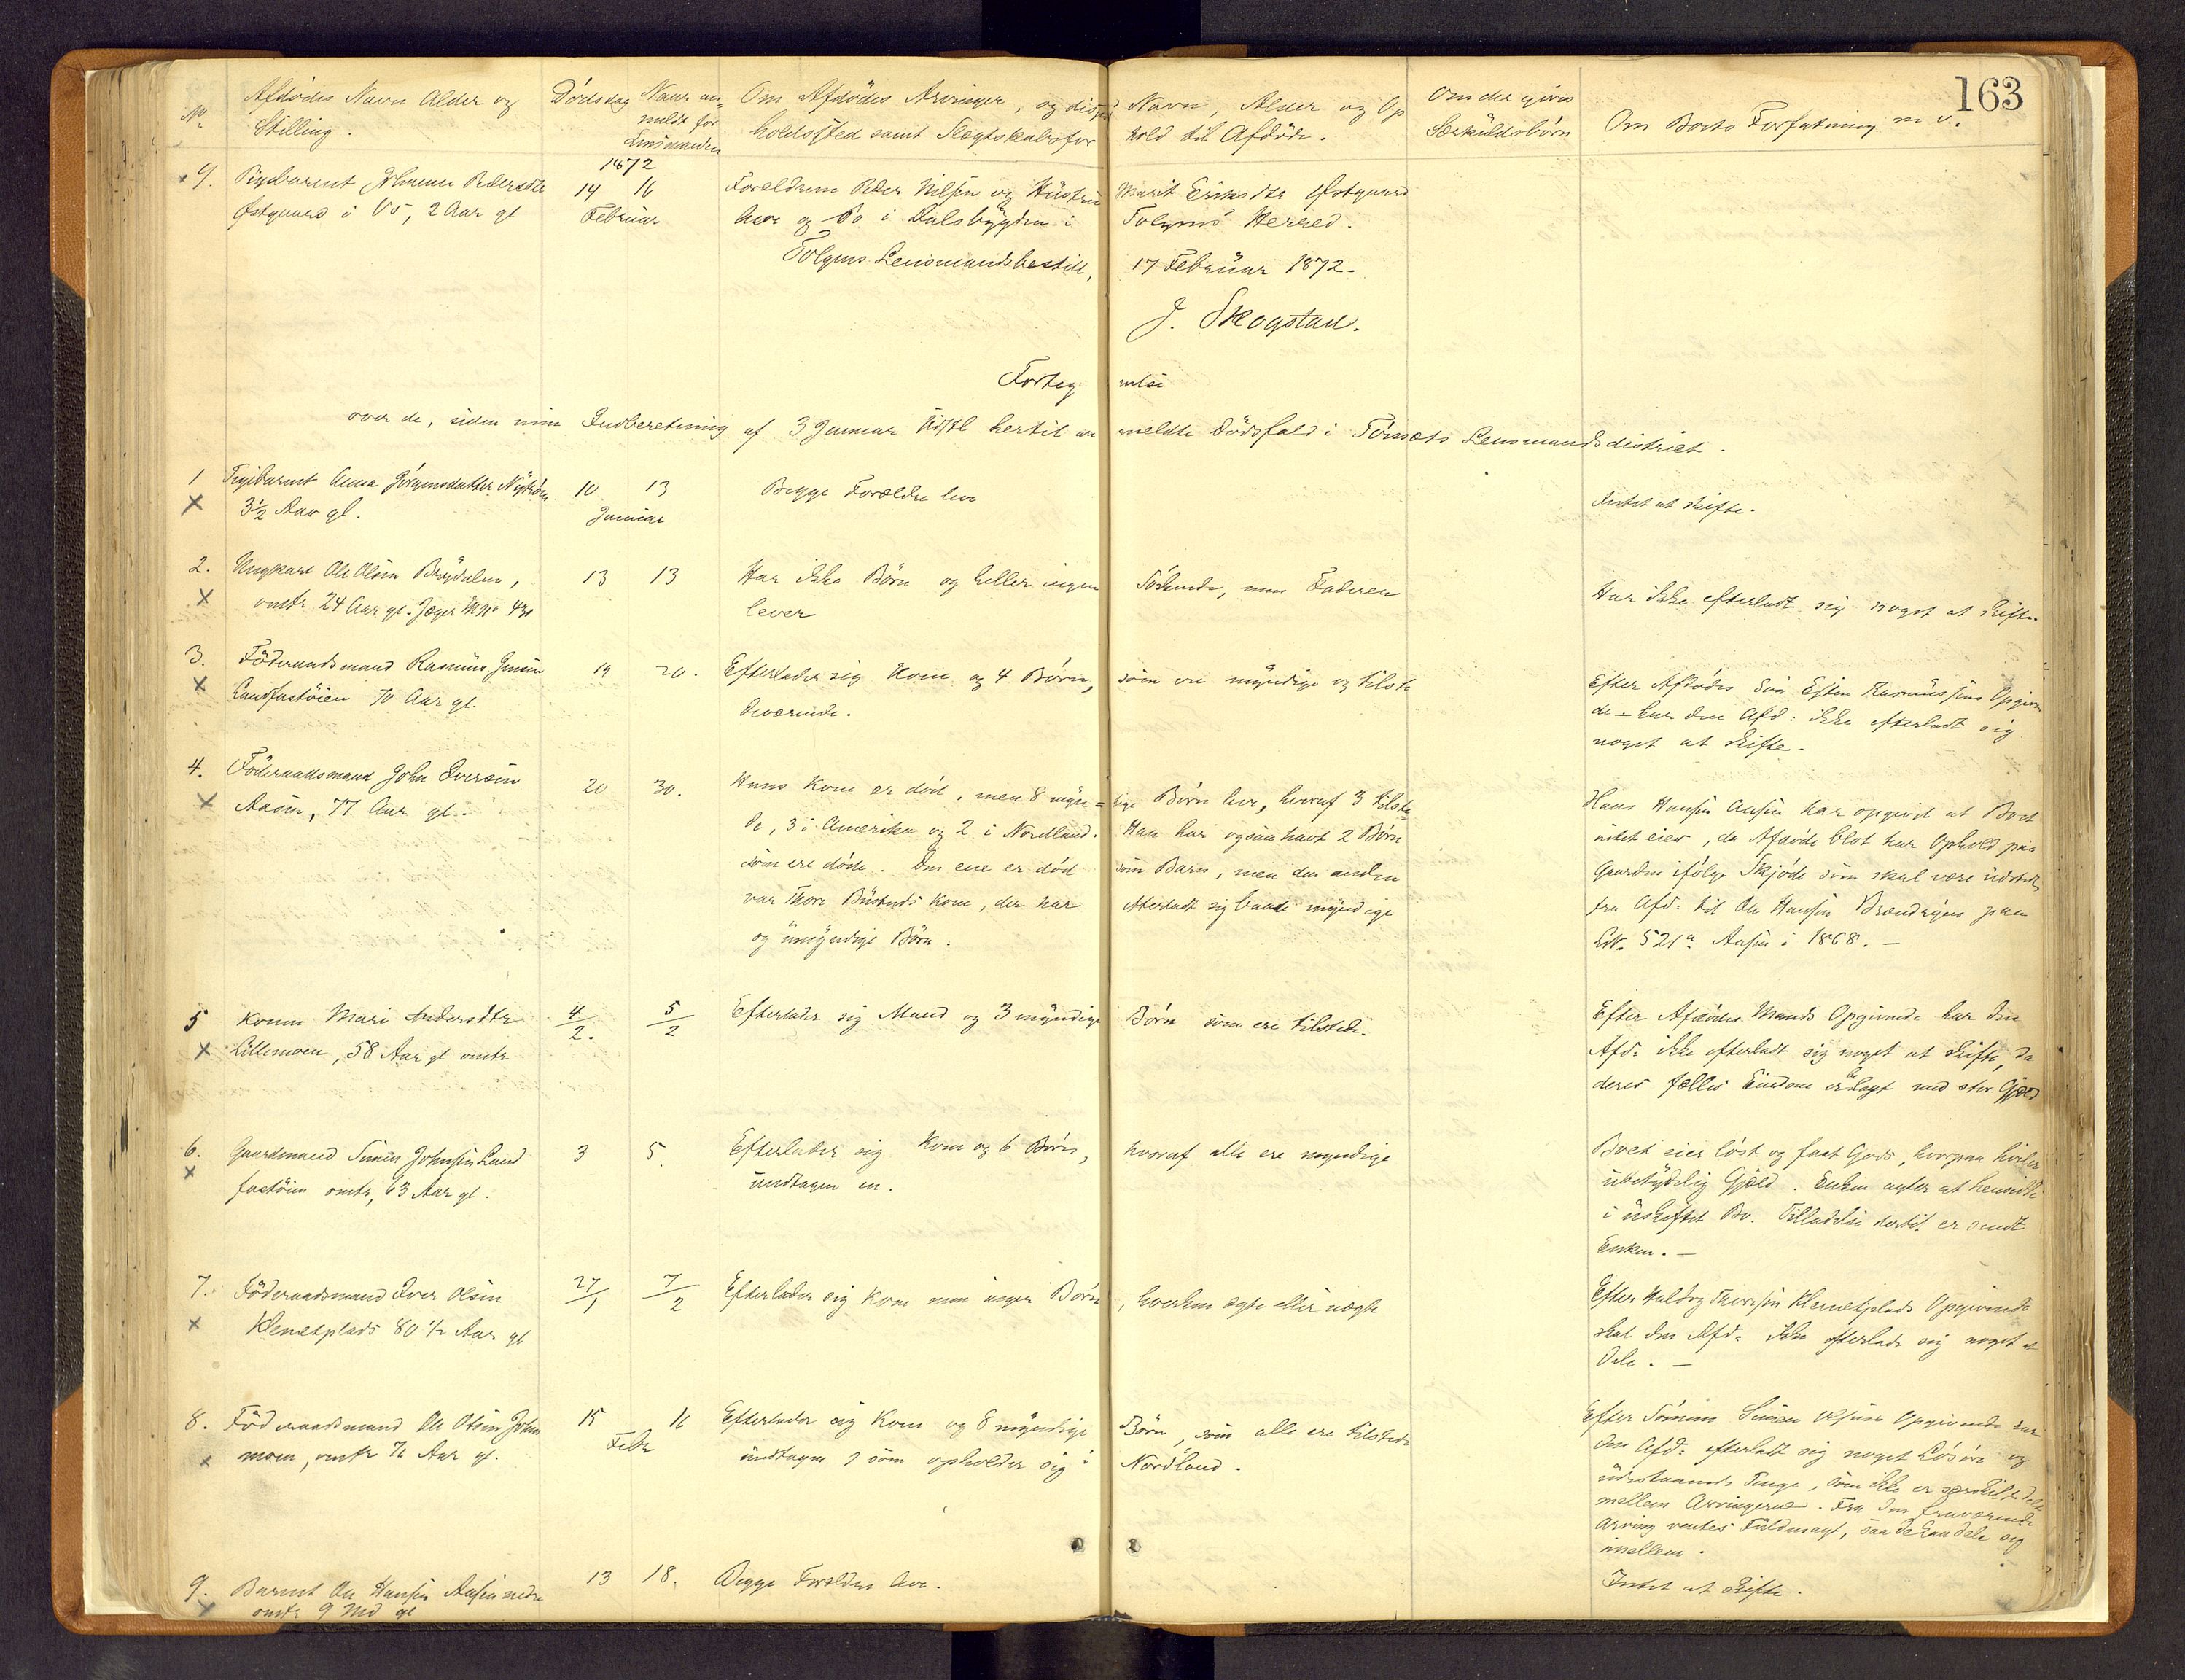 163
No Afdödes Navn Alder og Dödsdag Naar an- Om Afdödes Arvinger, og disses Navn, Alder og Op Om der gives Om Boets Forfatning m. v.
Stilling. meldt for holdssted samt Slegtskabsfor hold til Afdöde. Særkuldsbörn
Lensmanden
1872
9. Pigebarnet Johanne Pedersdtr 14 16 Forældrene Peder Nilsen og Hustru Marit Eriksdtr Østgaard
Østgaard i Os, 2 Aar gl Februar leve og Bo i Dalsbygden i Tolgens Herred.
Tolgens Lensmandsbestill, 17 Februar 1872.
J. Skogstad.
Forteg nelse
over de, siden min Indberetning af 3 Januar hertil an meldte Dödsfald i Tönsets Lensmandsdistrict.
1 Pigebarnet Anna Jörgensdatter 10 13 Begge Forældre leve Intet at skifte.
3½ Aar gl. Januar
2. Ungkarl Ole Olsen Brydalen, 13 13 Har ikke Börn og heller ingen Södskende, men Faderen Har ikke efterladt sig noget at skifte.
omtr 24 Aar gl. Jæger No 430 lever
3. Föderaadsmand Rasmus Jensen 19 20. Efterlader sig Kone og 4 Börn, som ere myndige og tilste Efter Afdödes Sön Esten Rasmussens Opgiven
Landfastöien 70 Aar gl. deværende. de - har den Afd: ikke efterladt sig
noget at skifte.
4. Föderaadsmand John Iversen 20 30. Hans Kone er död, men 8 myn= dige Börn lever, hvoraf 3 tilste= Hans Hansen Aasen har opgivet at Boet
Aasen, 77 Aar gl. de, 3 i Amerika og 2 i Nordland. Han har ogsaa havt 2 Börn intet eier, da Afdöde blot har Ophold paa
som ere döde. Den ene er död som Barn, men den anden Gaarden ifölge Skjöde som skal være udstedt
var Thore Kone, der har efterladt sig baade myndige fra Afd: til Ole Hansen paa
og umyndige Börn. LN. 521a Aasen i 1868. —
5 Konen Mari Andersdtr 4/2. 5/2 Efterlader sig Mand og 3 myndige Börn som ere tilstede. Efter Afdödes Mands Opgivende har den
Lillemoen, 58 Aar gl omtr Afd: ikke efterladt sig noget at skifte, da
deres fælles Eiendom er belagt med stor Gjæld
6. Gaardmand Simen Johnsen Land 3 5. Efterlader sig Kone og 6 Börn, hvoraf alle ere myndige Boet eier löst og fast Gods, hvorpaa hviler
fastöien omtr, 63 Aar gl. undtagen en. ubetydelig Gjæld. Enken agter at hensidde
i uskiftet Bo. Tilladelse dertil er sendt
Enken. —
7. Föderaadsmand Iver Olsen 27/1 7/2 Efterlader sig Kone men ingen Börn, hverken ægte eller uægte Efter Haldog Thoresen Klemetplads Opgivende
Klemetplads 80 ½ Aar gl skal den Afd: ikke efterlade sig noget at
Dele. —
8. Föderaadsmand Ole Olsen John 15 16 Efterlader sig Kone og 8 myndige Börn, som alle ere tilstede Efter Sönnen Simen Olsens Opgivende har
moen, omtr 76 Aar gl. Febr undtagen 1 som opholder sig i Nordland. den Afd: efterladt sig noget Lösöre og
udestaaende Penge, som ikke er særskilt delt
mellem Arvingerne. Fra den fraværende
Arving ventes Fuldmagt, saa de kan dele sig
imellem.
9. Barnet Ole Hansen Aasen nedre 13 18. Begge Forældre leve. Intet at skifte.
omtr 9 Md gl